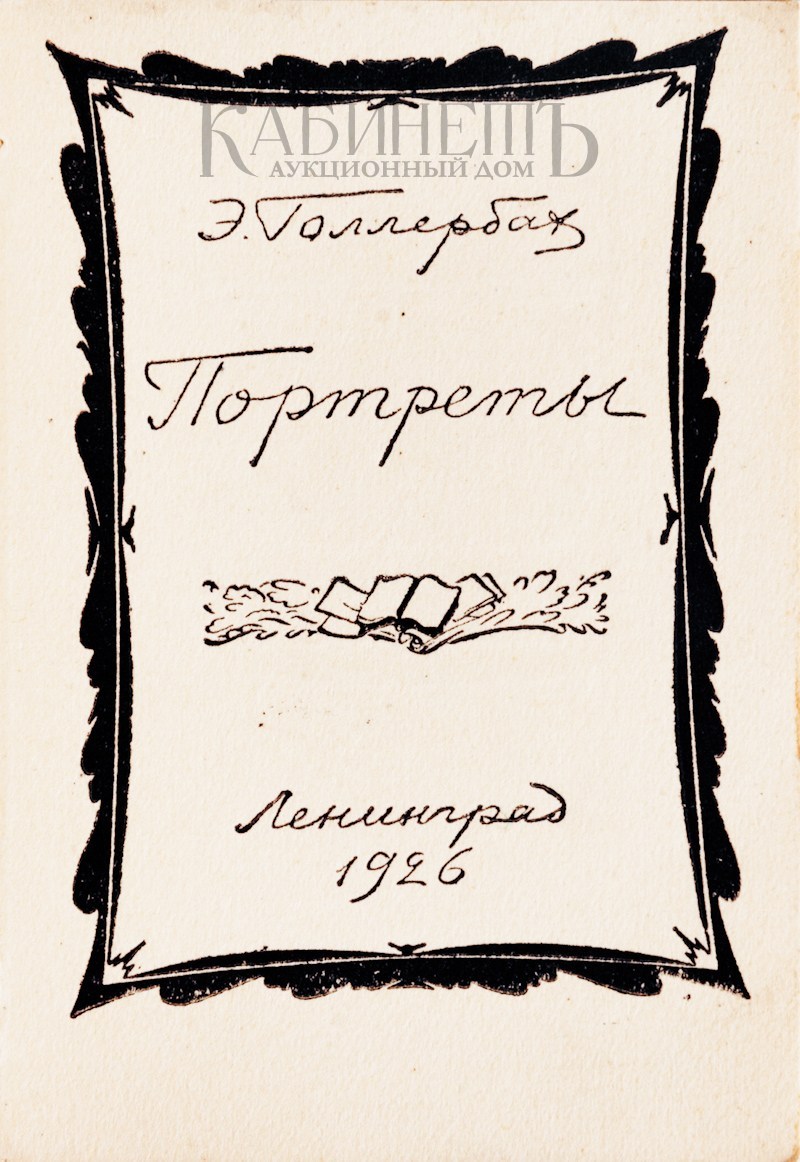 КАБИНЕТЪ
АУКЦИОННЫЙ ДОМ
Э. Голлербах
Портреты
Ленинград
1926